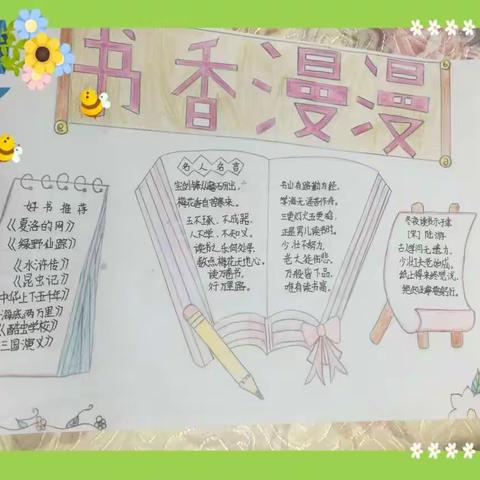 书香漫漫
好书推荐
《夏洛的网》
《绿野仙踪》
《水浒传》
《昆虫记》
中华上下五千年》
海底两万里》
《酷虫学校》
三国演义》
名人名言
宝剑锋从磨砺出,
梅花香自苦寒来。
玉不琢、不成器。
人不学、不知义。
读书之乐何处寻,
数点梅花天地心。
读万卷书
行万里路。
书山有路勤为径,
学海无涯苦作舟。
三更灯火五更鸡,
正是男儿读书时。
少壮不努力
老大徒伤悲。
万般皆下品,
唯有读书高。
冬夜读书示子聿
[宋] 陆游
古人学问无遗力,
少壮工夫老始成。
纸上得来终觉浅,
绝知此事要躬行。